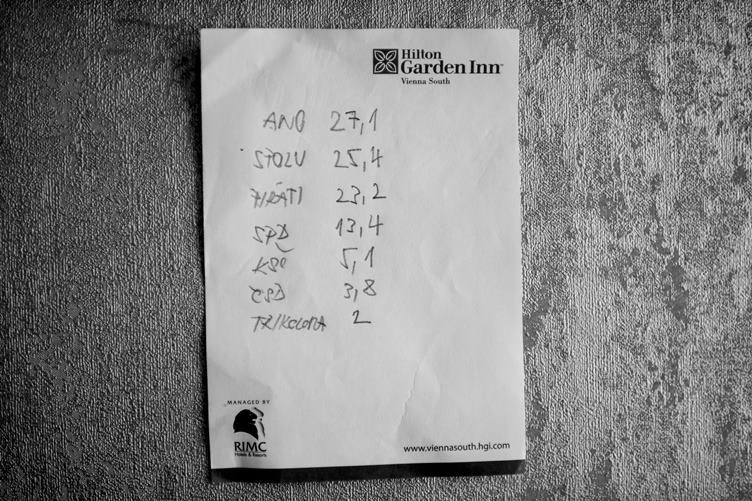 Hilton
Garden Inn™
Vienna South
ANO 27,1
STOLU 25,4
PIRÁTI 23,2
SPD 13,4
KSČ 5,1
ČSD 3,8
TR/KOLORA 2
MANAGED BY
RIMC
Hotels & Resorts
www.viennasouth.hgi.com